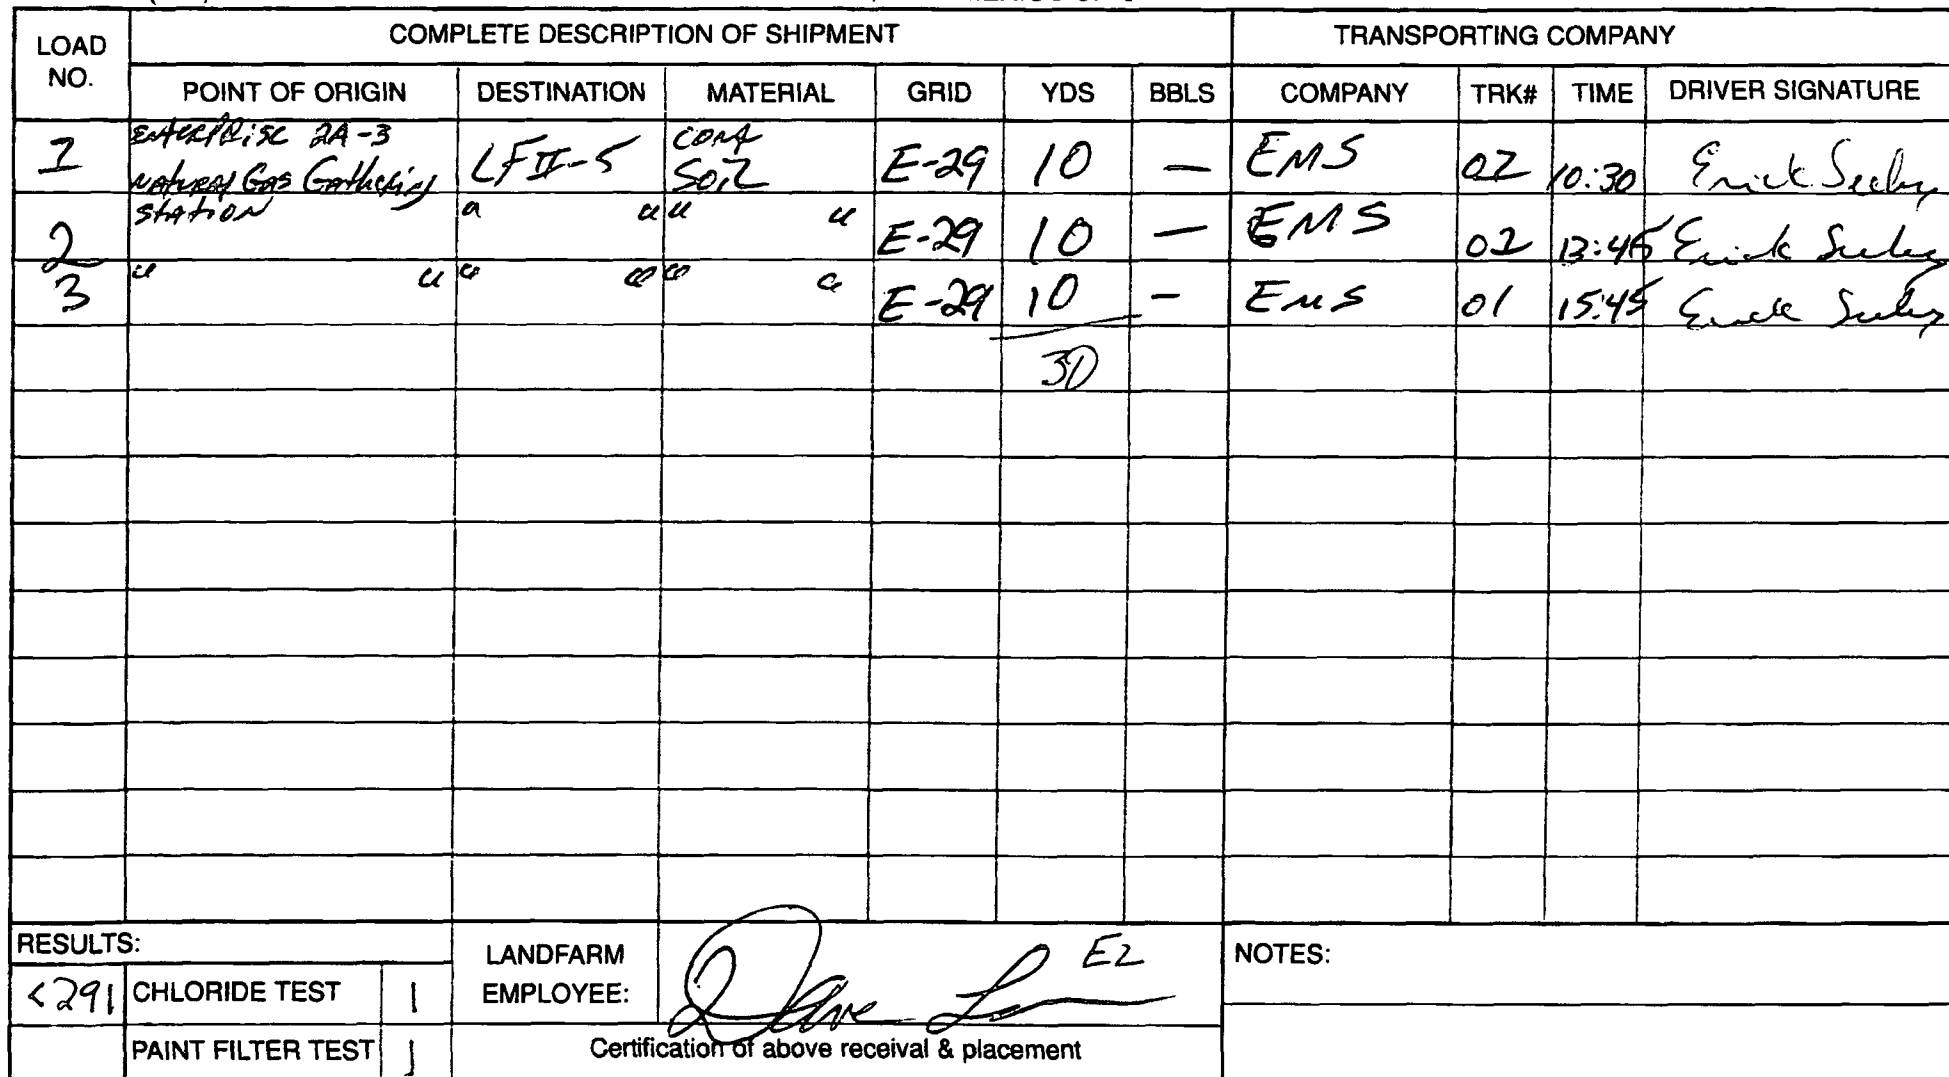 COMPLETE DESCRIPTION OF SHIPMENT TRANSPORTING COMPANY
LOAD NO. POINT OF ORIGIN DESTINATION MATERIAL GRID YDS BBLS COMPANY TRK# TIME DRIVER SIGNATURE
1 Enterprise 2A-3 Natural Gas Gathering Station LFII-5 Cont Soil E-29 10 — EMS 02 10:30 Erick Seeley
2 " " " " E-29 10 — EMS 02 13:45 Erick Seeley
3 " " " " " " E-29 10 - EMS 01 15:45 Erick Seeley
30
RESULTS: LANDFARM EMPLOYEE: EZ NOTES:
<291 CHLORIDE TEST 1
PAINT FILTER TEST 1 Certification of above receival & placement